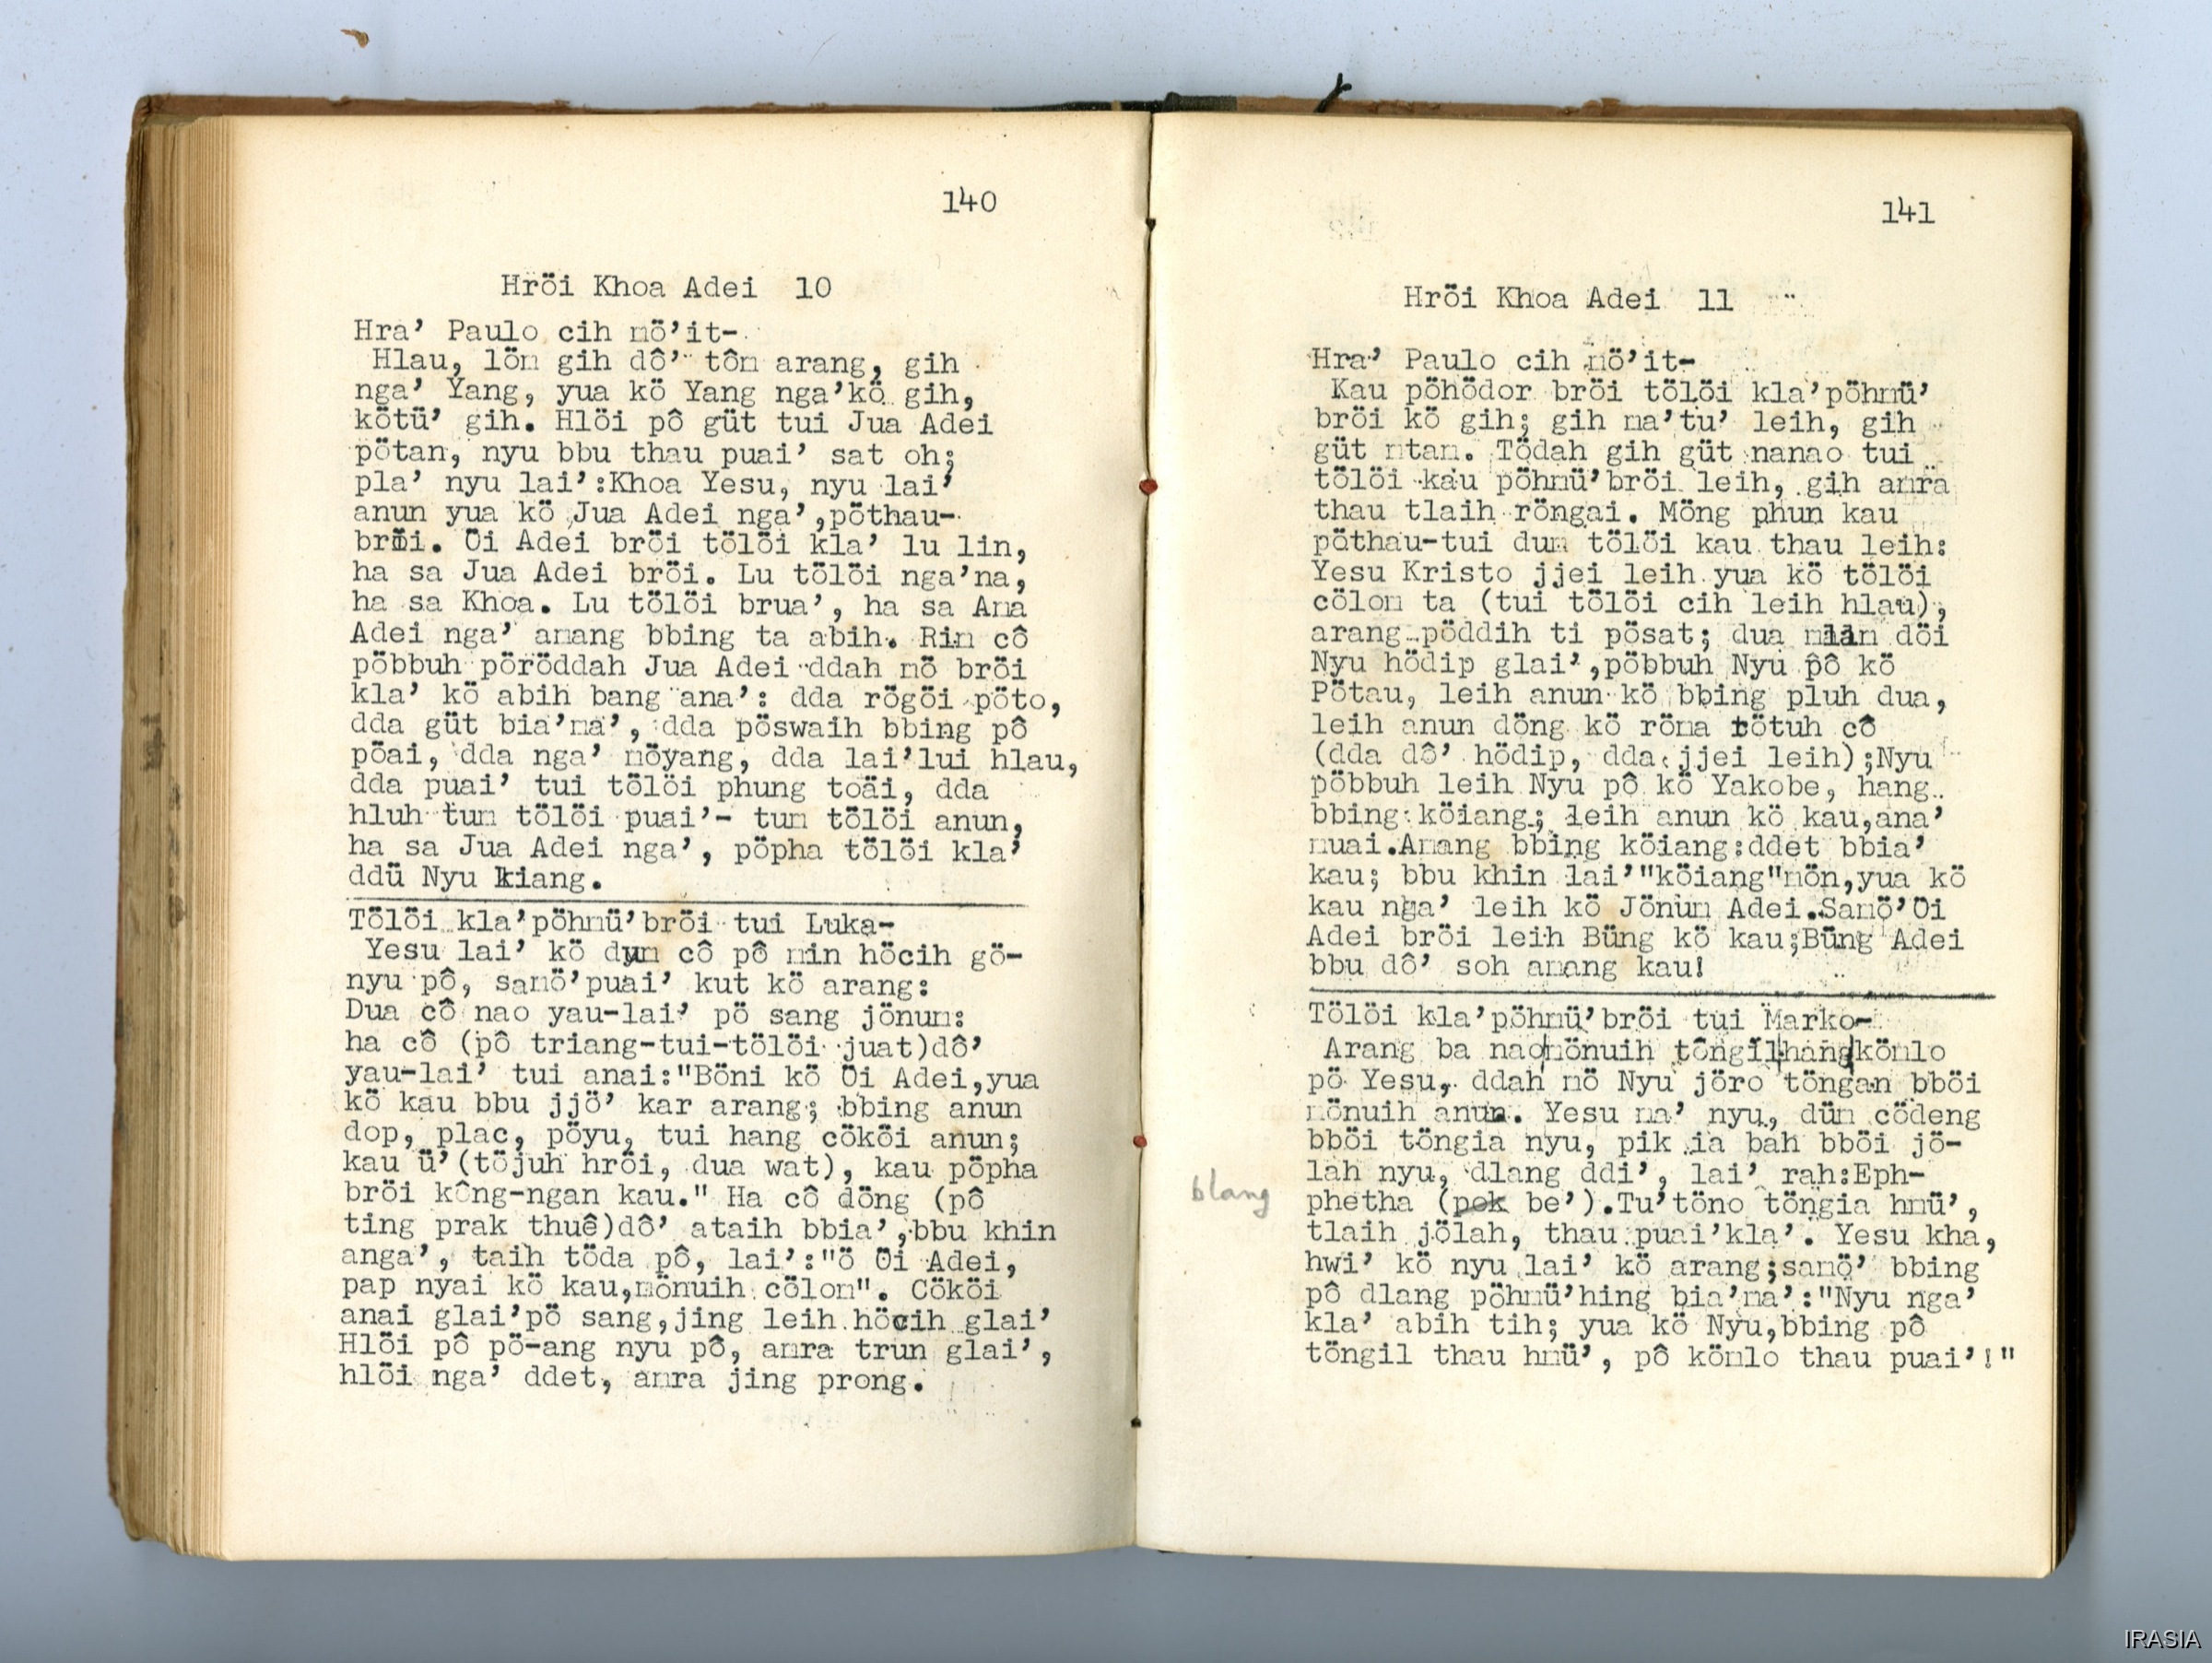 140
Hröi Khoa Adei 10
Hra’ Paulo cih mö’it-
Hlau, löm gih dô’ tôm arang, gih
nga’ Yang, yua kö Yang nga’kö gih,
kötü’ gih. Hlöi pô güt tui Jua Adei
pötam, nyu bbu thau puai’ sat oh;
pla’ nyu lai’:Khoa Yesu, nyu lai’
anun yua kö Jua Adei nga’,pöthau-
bröi. Öi Adei bröi tölöi kla’ lu lin,
ha sa Jua Adei bröi. Lu tölöi nga’na,
ha sa Khoa. Lu tölöi brua’, ha sa Ama
Adei nga’ amang bbing ta abih. Rim cô
pöbbuh pöröddah Jua Adei ddah mö bröi
kla’ kö abih bang ana’: dda rögöi pöto,
dda güt bia’ma’, dda pöswaih bbing pô
pöai, dda nga’ möyang, dda lai’lui hlau,
dda puai’ tui tölöi phung toäi, dda
hluh tum tölöi puai’- tum tölöi anun,
ha sa Jua Adei nga’, pöpha tölöi kla’
ddü Nyu kiang.
Tölöi kla’pöhmü’bröi tui Luka-
Yesu lai’ kö dum cô pô min höcih gö-
nyu pô, samö’puai’ kut kö arang:
Dua cô nao yau-lai’ pö sang jönum:
ha cô (pô triang-tui-tölöi juat)dô’
yau-lai’ tui anai:"Böni kö Öi Adei,yua
kö kau bbu jjö’ kar arang; bbing anun
dop, plac, pöyu, tui hang cököi anun;
kau ü’(töjuh hröi, dua wat), kau pöpha
bröi kông-ngan kau." Ha cô döng (pô
ting prak thuê)dô’ ataih bbia’,bbu khin
anga’, taih töda pô, lai’:"ö Öi Adei,
pap nyai kö kau,mönuih cölom". Cököi
anai glai’pö sang,jing leih höcih glai’
Hlöi pô pö-ang nyu pô, amra trun glai’,
hlöi nga’ ddet, amra jing prong.
141
Hröi Khoa Adei 11
Hra’ Paulo cih mö’it-
Kau pöhödor bröi tölöi kla’pöhmü’
bröi kö gih; gih ma’tu’ leih, gih
güt mtam. Tödah gih güt nanao tui
tölöi kau pöhmü’bröi leih, gih amra
thau tlaih röngai. Möng phun kau
pöthau-tui dum tölöi kau thau leih:
Yesu Kristo jjei leih yua kö tölöi
cölom ta (tui tölöi cih leih hlau),
arang pöddih ti pösat; dua mlam döi
Nyu hödip glai’,pöbbuh Nyu pô kö
Pötau, leih anun kö bbing pluh dua,
leih anun döng kö röma rötuh cô
(dda dô’ hödip, dda jjei leih);Nyu
pöbbuh leih Nyu pô kö Yakobe, hang
bbing köiang; leih anun kö kau,ana’
muai.Amang bbing köiang:ddet bbia’
kau; bbu khin lai’"köiang"mön,yua kö
kau nga’ leih kö Jönum Adei.Samö’Öi
Adei bröi leih Büng kö kau;Büng Adei
bbu dô’ soh amang kau!
Tölöi kla’pöhmü’bröi tui Marko-
Arang ba nao mönuih töngil hang kömlo
pö Yesu, ddah mö Nyu jöro töngan bböi
mönuih anun. Yesu ma’ nyu, düm cödeng
bböi töngia nyu, pik ia bah bböi jö-
lah nyu, dlang ddi’, lai’ rah:Eph-
blang
phetha (pok be’).Tu’töno töngia hmü’,
tlaih jölah, thau puai’kla’. Yesu kha,
hwi’ kö nyu lai’ kö arang;samö’ bbing
pô dlang pöhmü’hing bia’ma’:"Nyu nga’
kla’ abih tih; yua kö Nyu,bbing pô
töngil thau hmü’, pô kömlo thau puai’!"
IRASIA